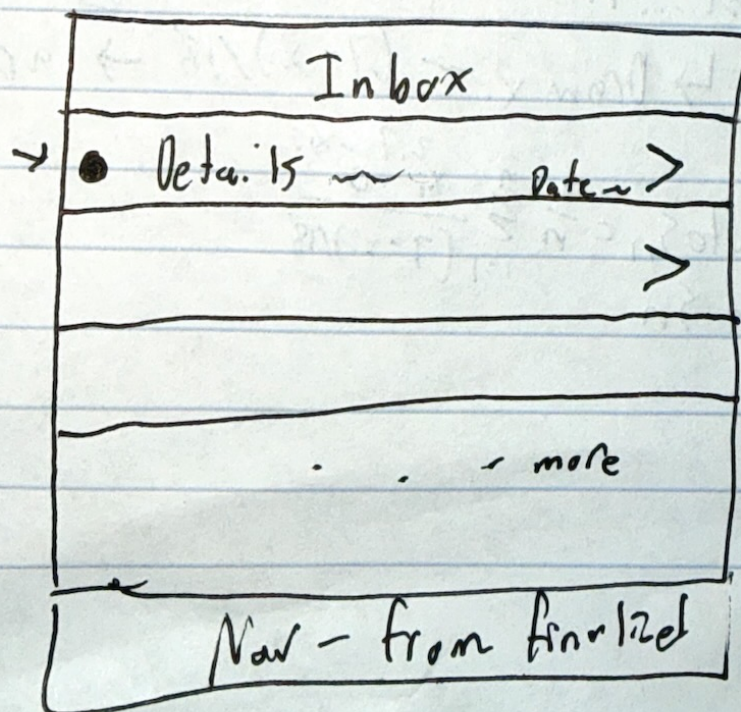 Inbox
Details Date >
>
... more
Nav - from finalized